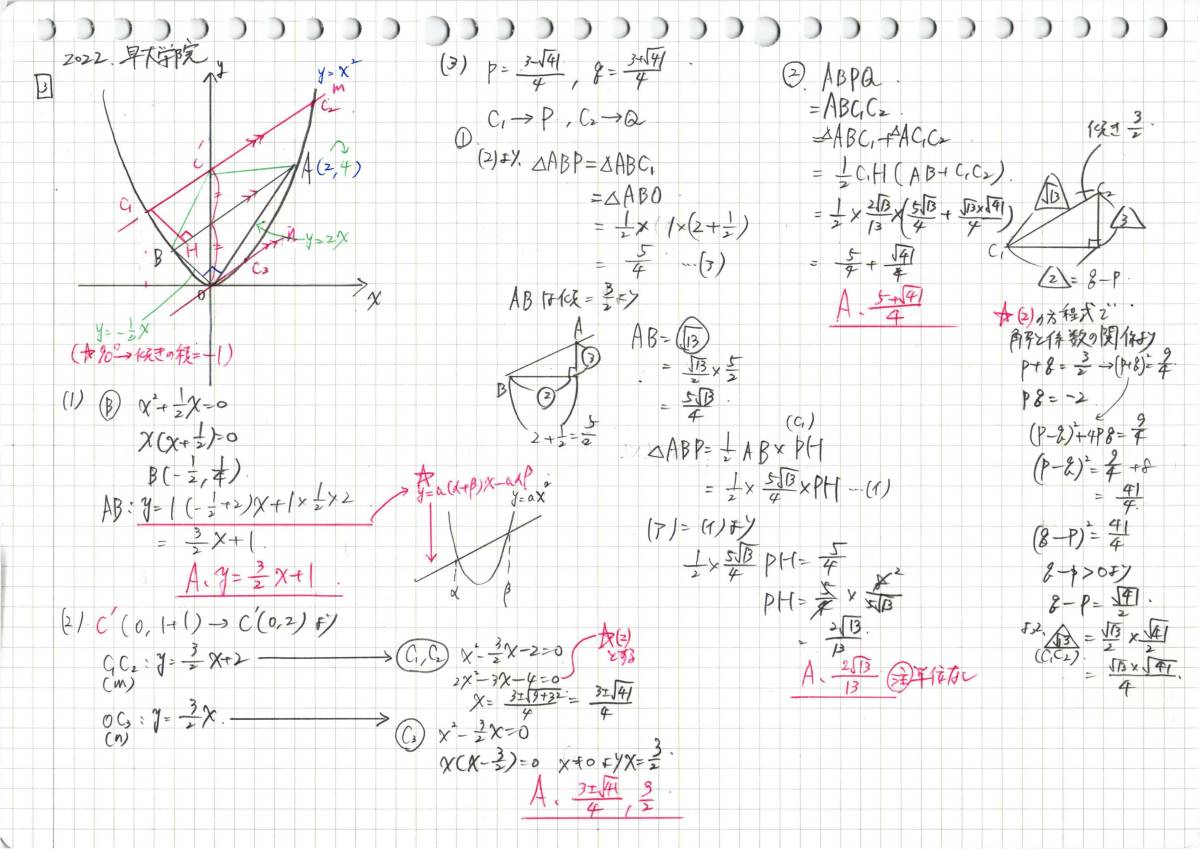 2022. 早大学院
3
y
y=x²
m
C₂
C'
A(2,4)
C₁
H
B
y=2x
n
C₃
O
x
y=-1/2x
(☆90°→傾きの積=-1)
(1) Ⓑ x²+1/2x=0
x(x+1/2)=0
B(-1/2, 1/4).
AB: y=1(-1/2+2)x+1×1/2×2
= 3/2x+1.
A. y=3/2x+1.
☆ y=a(α+β)x-aαβ
y=ax²
α
β
(2) C'(0,1+1)→C'(0,2)より
C₁C₂: y=3/2x+2
(m)
OC₃: y=3/2x.
(n)
C₁,C₂ x²-3/2x-2=0
2x²-3x-4=0
x=3±√9+32/4=3±√41/4
☆(2)とする
C₃ x²-3/2x=0
x(x-3/2)=0 x≠0よりx=3/2.
A. 3±√41/4, 3/2
(3) p=3-√41/4, q=3+√41/4.
C₁→P, C₂→Q
①
(2)より. △ABP=△ABC₁
=△ABO
=1/2×1×(2+1/2)
=5/4 …(ア)
ABは傾=3/2より
A
B
③
②
2+1/2=5/2
AB=√13
=√13/2×5/2
=5√13/4
(C₁)
△ABP=1/2AB×PH
=1/2×5√13/4×PH…(イ)
(ア)=(イ)より
1/2×5√13/4 PH=5/4
PH=5/4×8²/5√13
=2√13/13.
A. 2√13/13 注単位なし
② ABPQ
=ABC₁C₂
=△ABC₁+△AC₁C₂
=1/2C₁H(AB+C₁C₂)
=1/2×2√13/13×(5√13/4+√13×√41/4)
=5/4+√41/4
A. 5+√41/4
傾き3/2.
√13
C₂
3
C₁
2=q-p
☆(2)の方程式で
解と係数の関係より
p+q=3/2→(p+q)²=9/4
pq=-2
(p-q)²+4pq=9/4
(p-q)²=9/4+8
=41/4
(q-p)²=41/4
q-p>0より
q-p=√41/2.
よって √13=√13/2×√41/2
(C₁C₂)
=√13×√41/4.